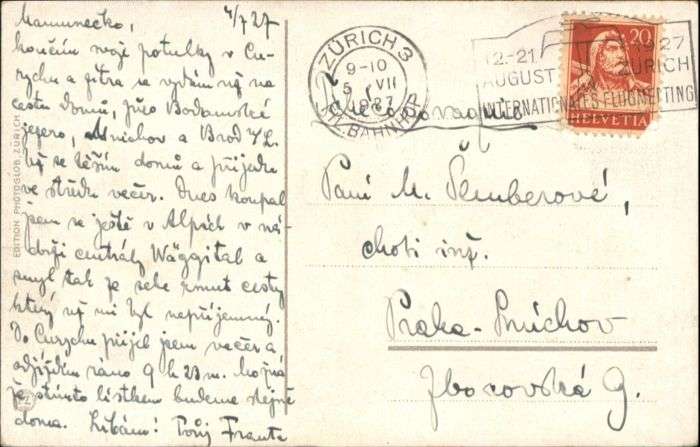 4/7 27
Maminečko,
končím svoji potulky v Cu-
rychu a zítra se vydám už na
cestu domů, přes Bodamské
jezero, Mnichov a Brod n/L.
Už se těším domů a přijedu
ve středu večer. Dnes koupal
jsem se ještě v Alpách v ná-
drži centrály Wäggital a
smyl tak ze sebe zmut cesty
který už mi byl nepříjemný.
Do Curychu přijel jsem večer a
odjíždím ráno 9 h 23 m. Možná
že s tímto lístkem budeme stejně
doma. Líbám! Tvůj Franta
EDITION PHOTOGLOB, ZÜRICH
ZÜRICH 3
9-10
5 VII
1927
BAHNHOF
12.-21.
AUGUST
1927
ZÜRICH
INTERNATIONALES FLUGMEETING
20
HELVETIA
Českoslovakia
Paní M. Šemberové,
choti inž.
Praha-Smíchov
Zborovská 9.